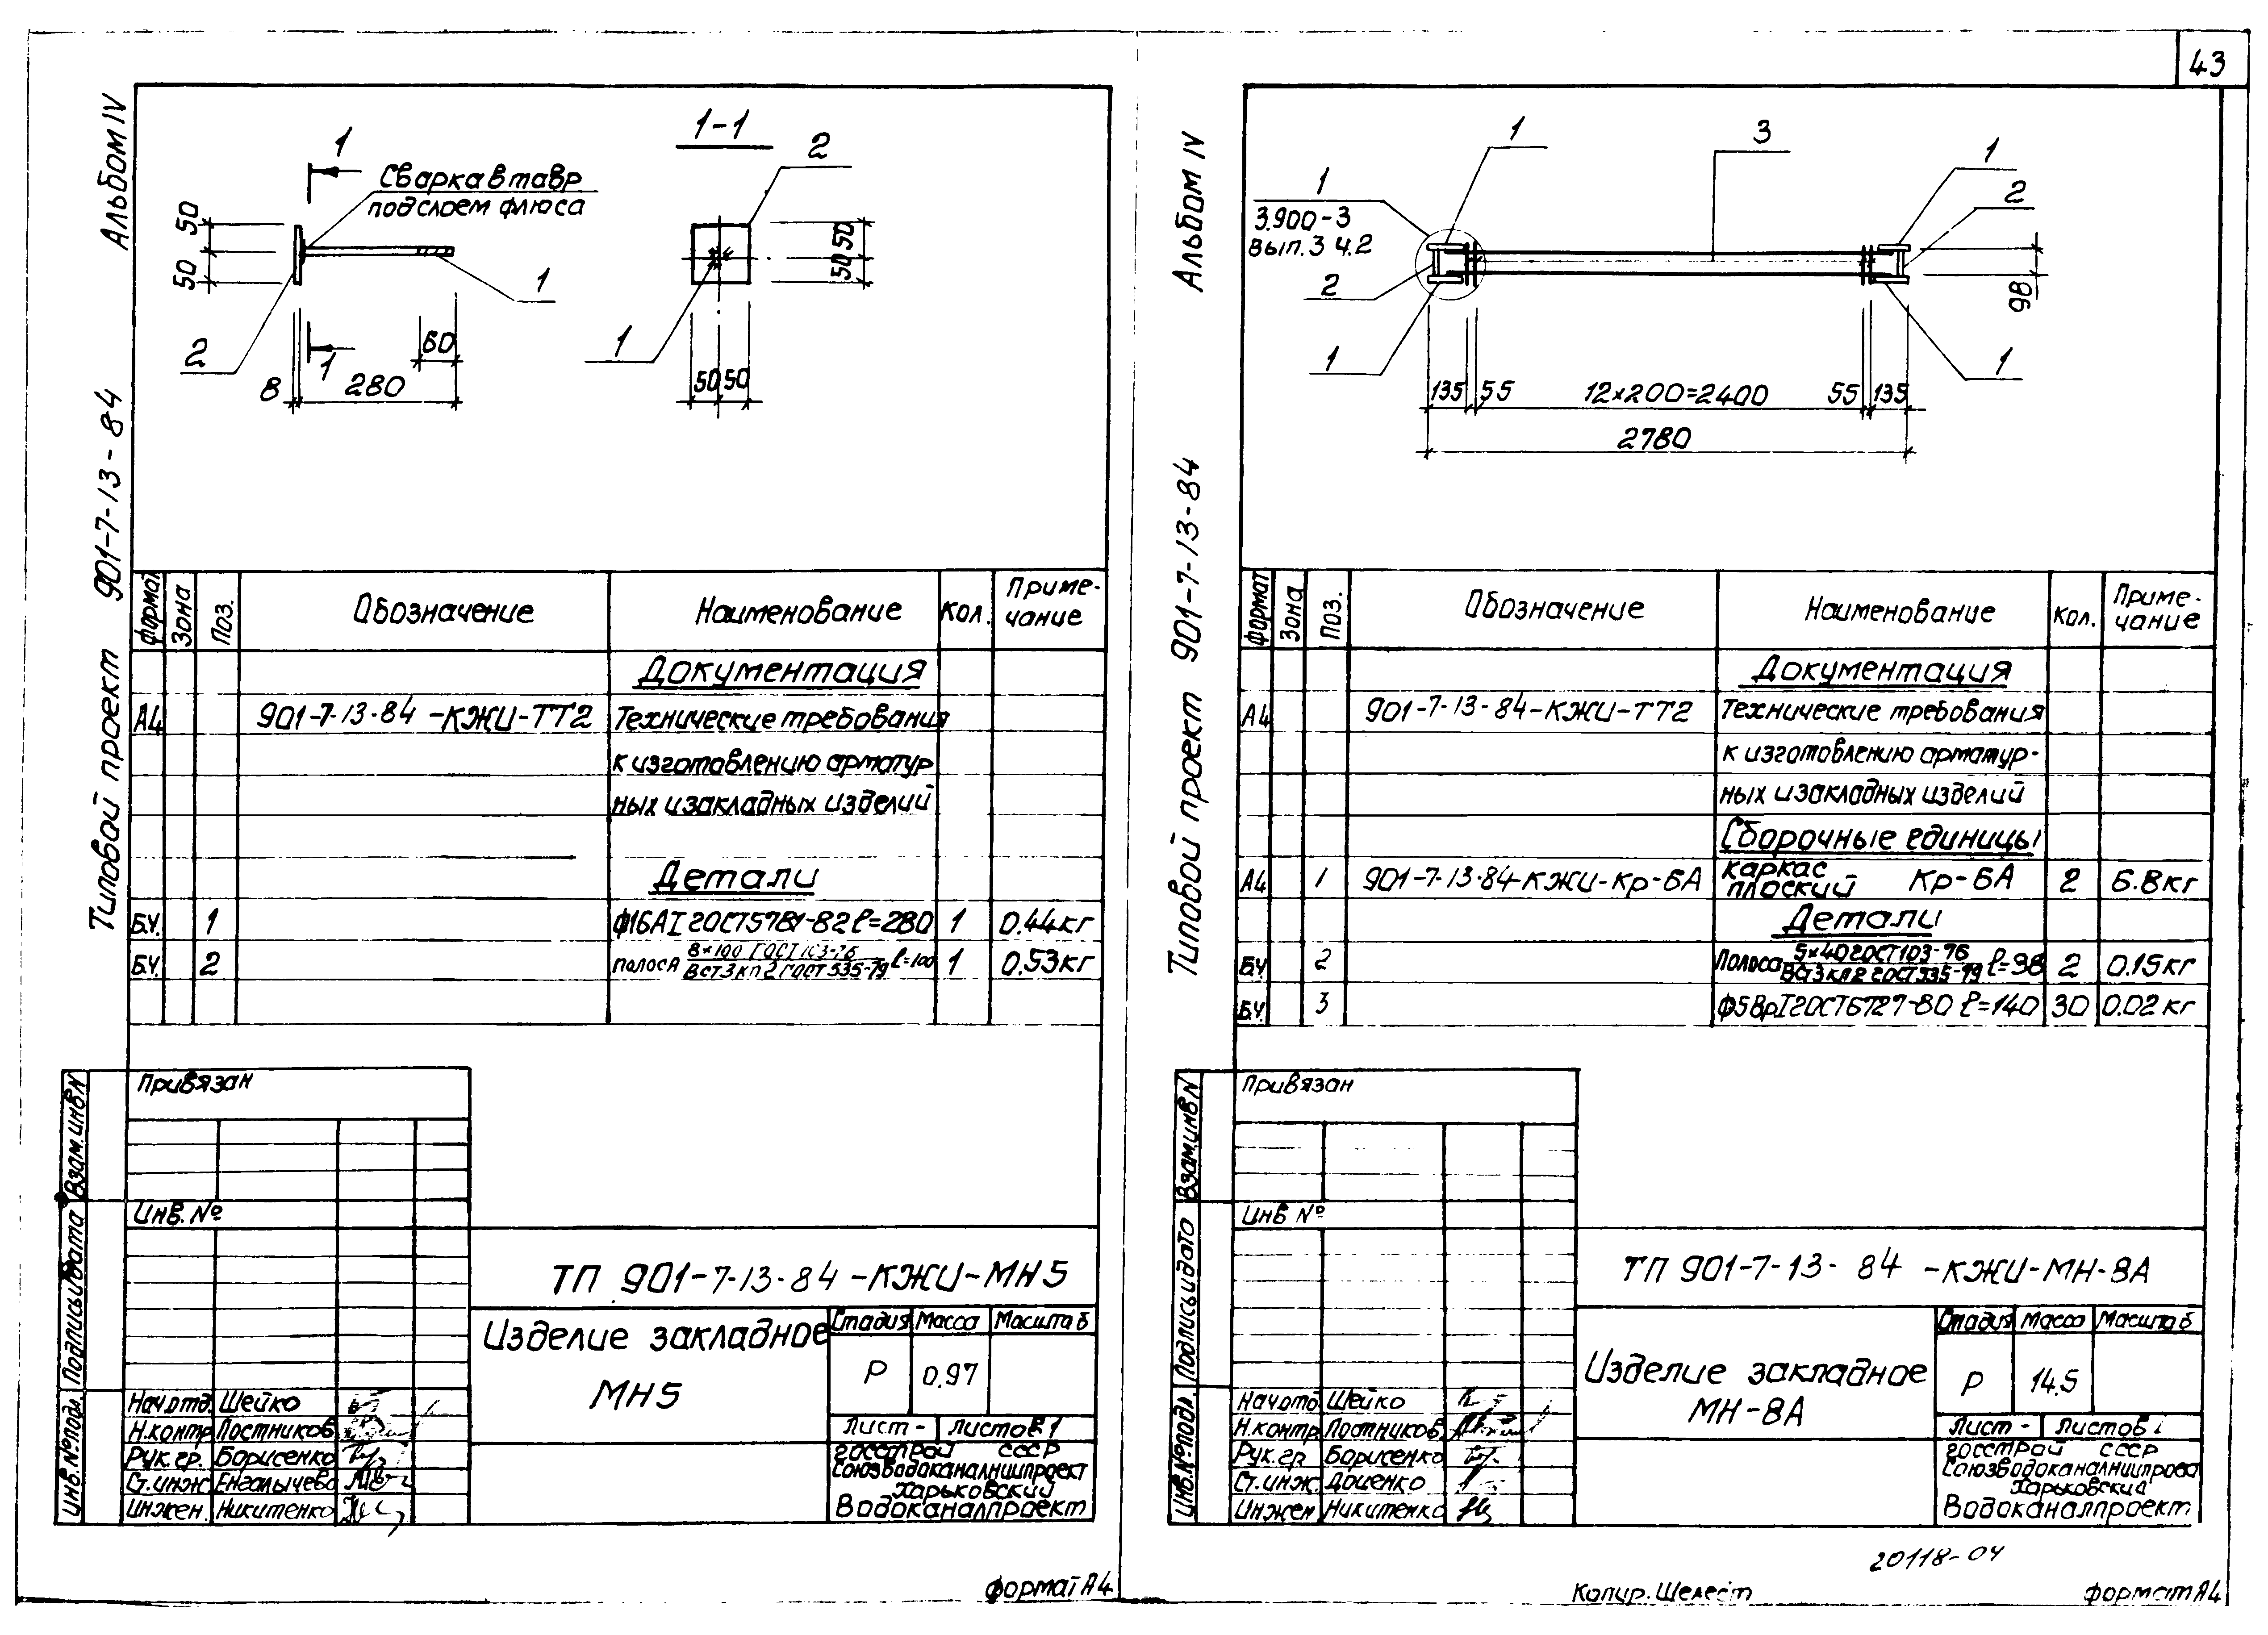 43
Альбом IV
Типовой проект 901-7-13-84
1
1-1
2
Сварка в тавр
под слоем флюса
50
50
1
2
1
60
8
280
50
50
1
50 50
Формат
Зона
Поз.
Обозначение
Наименование
Кол.
Приме-
чание
Документация
А4 901-7-13-84-КЖИ-ТТ2 Технические требования
к изготовлению арматур
ных и закладных изделий
Детали
Б.Ч. 1 ф16АI ГОСТ5781-82 ℓ=280 1 0.44кг
Б.Ч. 2 полоса 8×100 ГОСТ 103-76 ℓ=100 1 0.53кг
ВСт3кп2 ГОСТ 535-79
Привязан
Инв. №
Взам.инв N
Подпись и дата
Инв.№подл.
ТП 901-7-13-84-КЖИ-МН5
Изделие закладное
МН5
Стадия Масса Масштаб
Р 0,97
Лист - Листов 1
Госстрой СССР
Союзводоканалниипроект
Харьковский
Водоканалпроект
Нач.отд. Шейко
Н.контр Постников
Рук.гр. Борисенко
Ст.инж Енгалычева
Инжен. Никитенко
Формат А4
Альбом IV
Типовой проект 901-7-13-84
1
3
1
1
3.900-3
вып.3 ч.2
2
2
98
1
1
135 55 12×200=2400 55 135
2780
Формат
Зона
Поз.
Обозначение
Наименование
Кол.
Приме-
чание
Документация
А4 901-7-13-84-КЖИ-ТТ2 Технические требования
к изготовлению арматур-
ных и закладных изделий
Сборочные единицы
А4 1 901-7-13-84-КЖИ-Кр-6А каркас плоский Кр-6А 2 6.8кг
Детали
Б.Ч. 2 Полоса 5×40 ГОСТ103-76 ℓ=98 2 0.15кг
ВСт3кп2 ГОСТ535-79
Б.Ч. 3 ф5ВрI ГОСТ6727-80 ℓ=140 30 0.02кг
Привязан
Инв №
Взам.инв N
Подпись и дата
Инв.№подл.
ТП 901-7-13-84-КЖИ-МН-8А
Изделие закладное
МН-8А
Стадия Масса Масштаб
Р 14.5
Лист - Листов 1
Госстрой СССР
Союзводоканалниипроек
Харьковский
Водоканалпроект
Нач.отд Шейко
Н.контр Постников
Рук.гр Борисенко
Ст.инж. Доценко
Инжен Никитенко
20118-04
Копир. Шелест
Формат А4